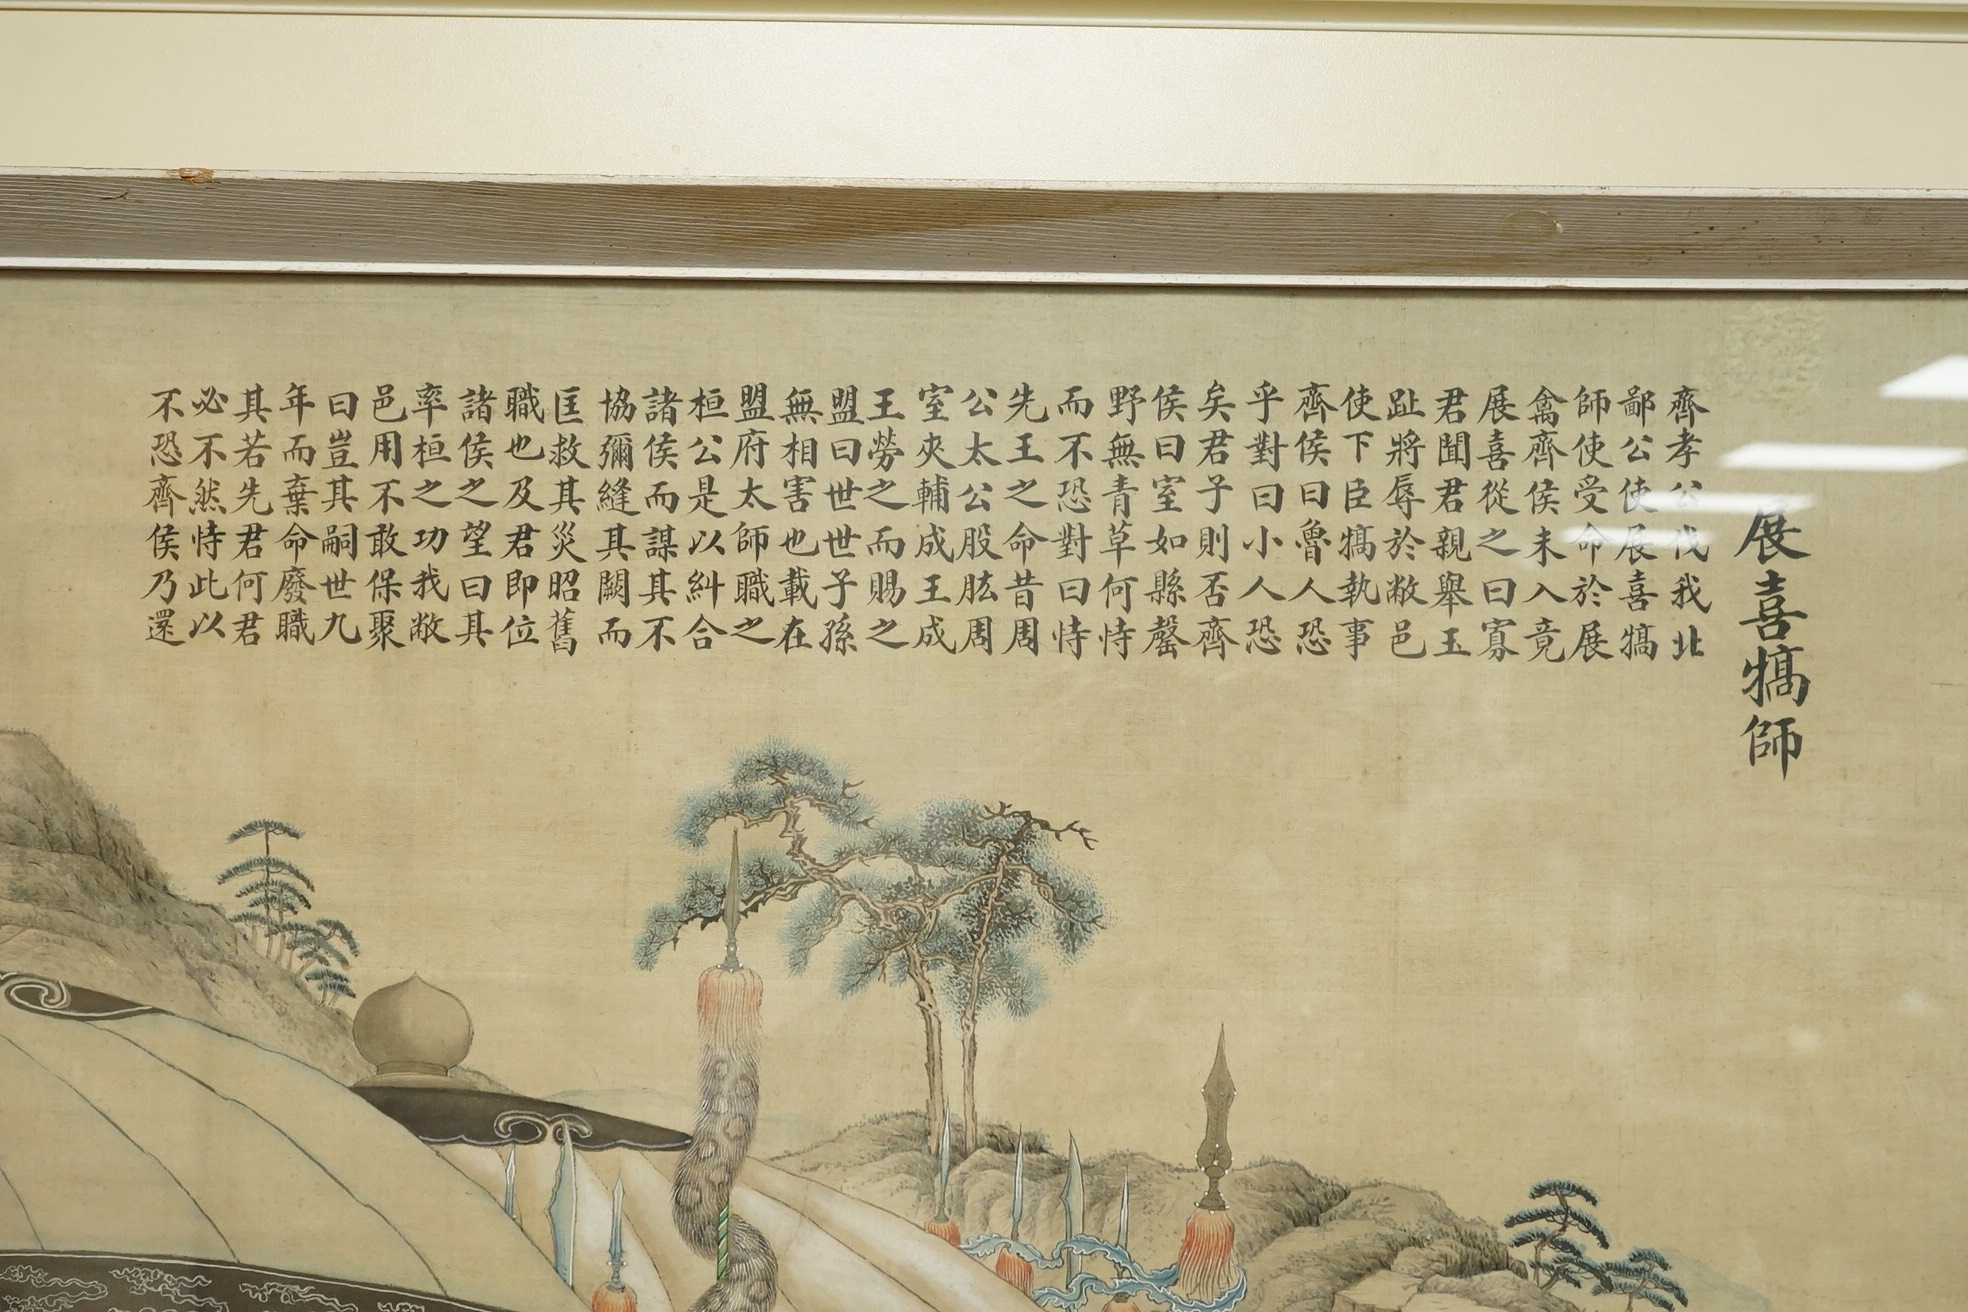 展喜犒師
齊孝公伐我北
鄙公使展喜犒
師使受命於展
禽齊侯未入竟
展喜從之曰寡
君聞君親舉玉
趾將辱於敝邑
使下臣犒執事
齊侯曰魯人恐
乎對曰小人恐
矣君子則否齊
侯曰室如縣罄
野無青草何恃
而不恐對曰恃
先王之命昔周
公太公股肱周
室夾輔成王成
王勞之而賜之
盟曰世世子孫
無相害也載在
盟府太師職之
桓公是以糾合
諸侯而謀其不
協彌縫其闕而
匡救其災昭舊
職也及君即位
諸侯之望曰其
率桓之功我敝
邑用不敢保聚
曰豈其嗣世九
年而棄命廢職
其若先君何君
必不然恃此以
不恐齊侯乃還